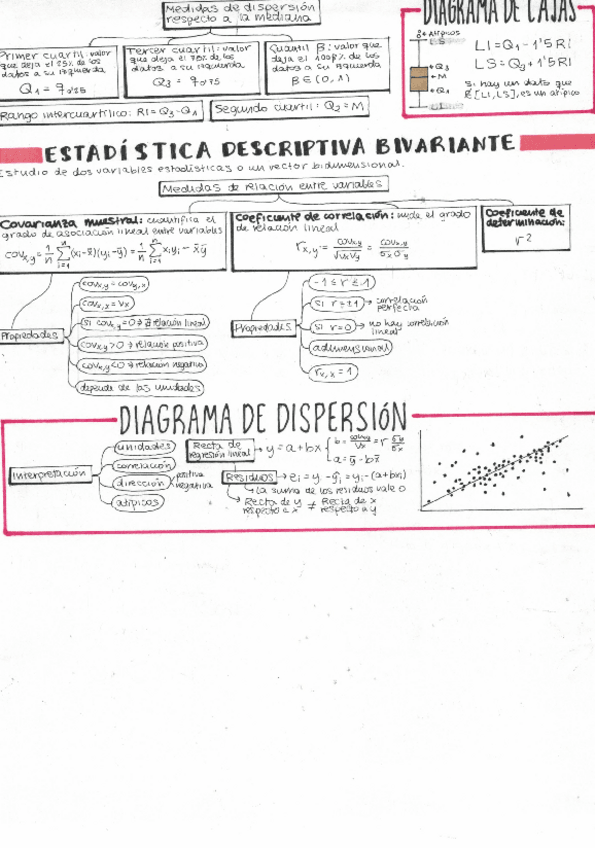 Medidas de dispersión
respecto a la mediana
Primer cuartil: valor
que deja el 25% de los
datos a su izquierda
Q₁ = q₀'₂₅
Tercer cuartil: valor
que deja el 75% de los
datos a su izquierda
Q₃ = q₀'₇₅
Cuantil β: valor que
deja el 100β% de los
datos a su izquierda
β ∈ (0,1)
Rango intercuartílico: RI = Q₃ - Q₁
Segundo cuartil: Q₂ = M
DIAGRAMA DE CAJAS
Atípicos
LS
Q₃
M
Q₁
LI
LI = Q₁ - 1'5 RI
LS = Q₃ + 1'5 RI
si hay un dato que
∉ [LI, LS], es un atípico
ESTADÍSTICA DESCRIPTIVA BIVARIANTE
Estudio de dos variables estadísticas o un vector bidimensional.
Medidas de relación entre variables
Covarianza muestral: cuantifica el
grado de asociación lineal entre variables
covₓ,ᵧ = 1/n Σ(xᵢ - x̄)(yᵢ - ȳ) = 1/n Σ xᵢyᵢ - x̄ȳ
Coeficiente de correlación: mide el grado
de relación lineal
rₓ,ᵧ = covₓ,ᵧ / √vₓvᵧ = covₓ,ᵧ / σₓσᵧ
Coeficiente de
determinación:
r²
Propiedades
covₓ,ᵧ = covᵧ,ₓ
covₓ,ₓ = vₓ
si covₓ,ᵧ = 0 → ∄ relación lineal
covₓ,ᵧ > 0 → relación positiva
covₓ,ᵧ < 0 → relación negativa
depende de las unidades
Propiedades
-1 ≤ r ≤ 1
si r = ±1 → correlación
perfecta
si r = 0 → no hay correlación
lineal
adimensional
rₓ,ₓ = 1
DIAGRAMA DE DISPERSIÓN
Interpretación
unidades
correlación
dirección
positiva
negativa
atípicos
Recta de
regresión lineal
y = a + bx
b = covₓᵧ / vₓ = r σᵧ / σₓ
a = ȳ - bx̄
Residuos → eᵢ = yᵢ - ŷᵢ = yᵢ - (a + bxᵢ)
La suma de los residuos vale 0
Recta de y ≠ Recta de x
respecto a x respecto a y